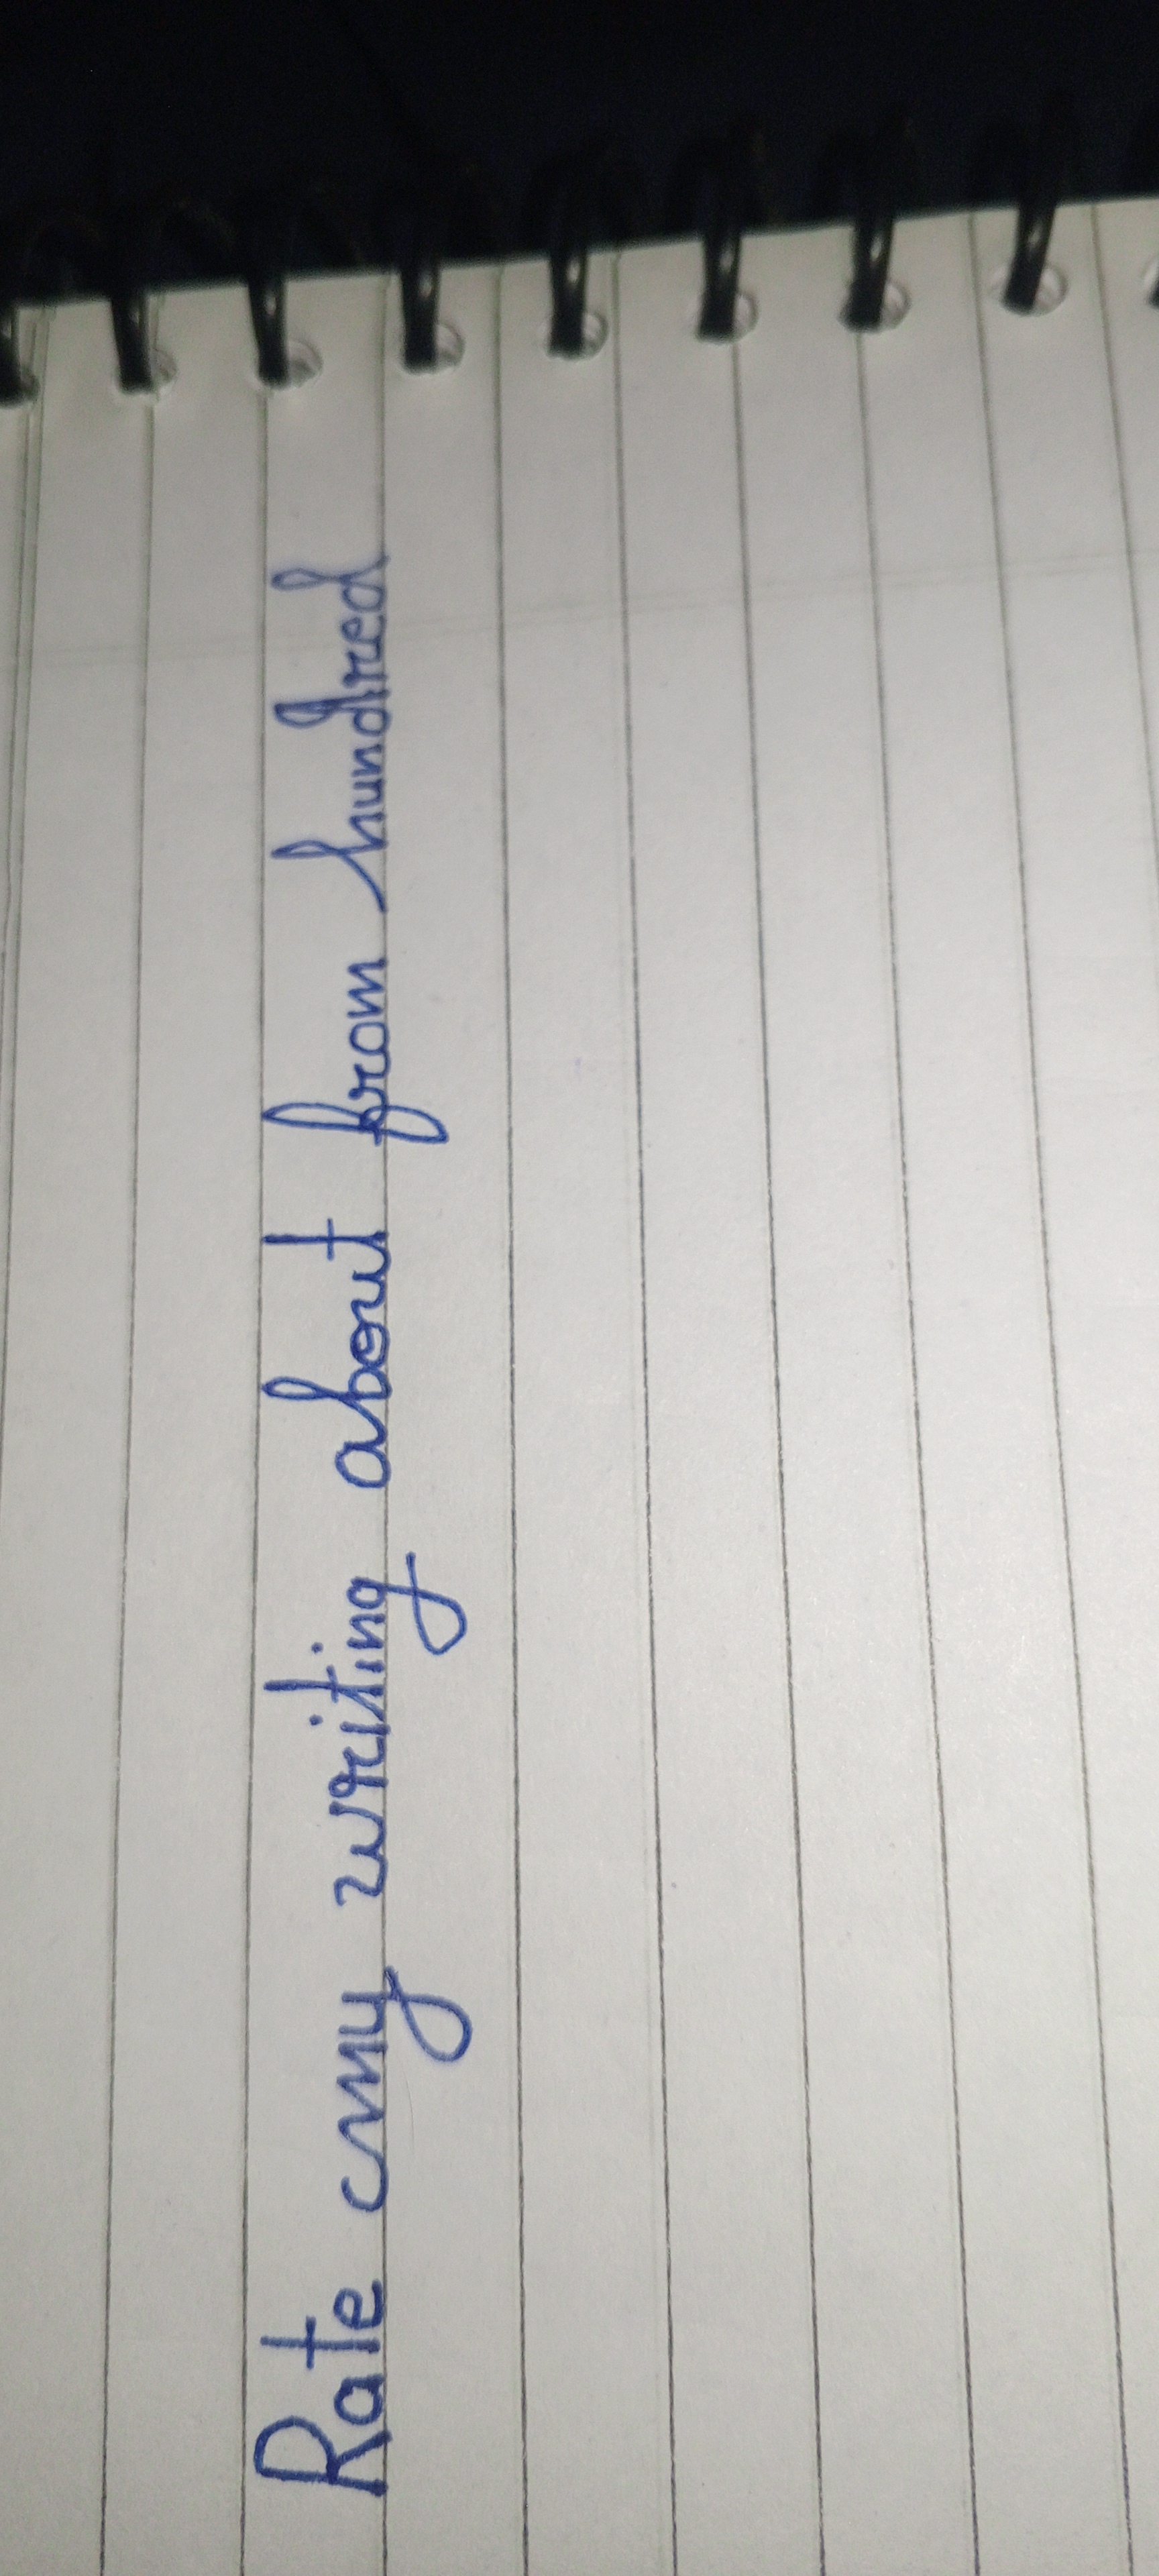 Rate my writing about from hundred